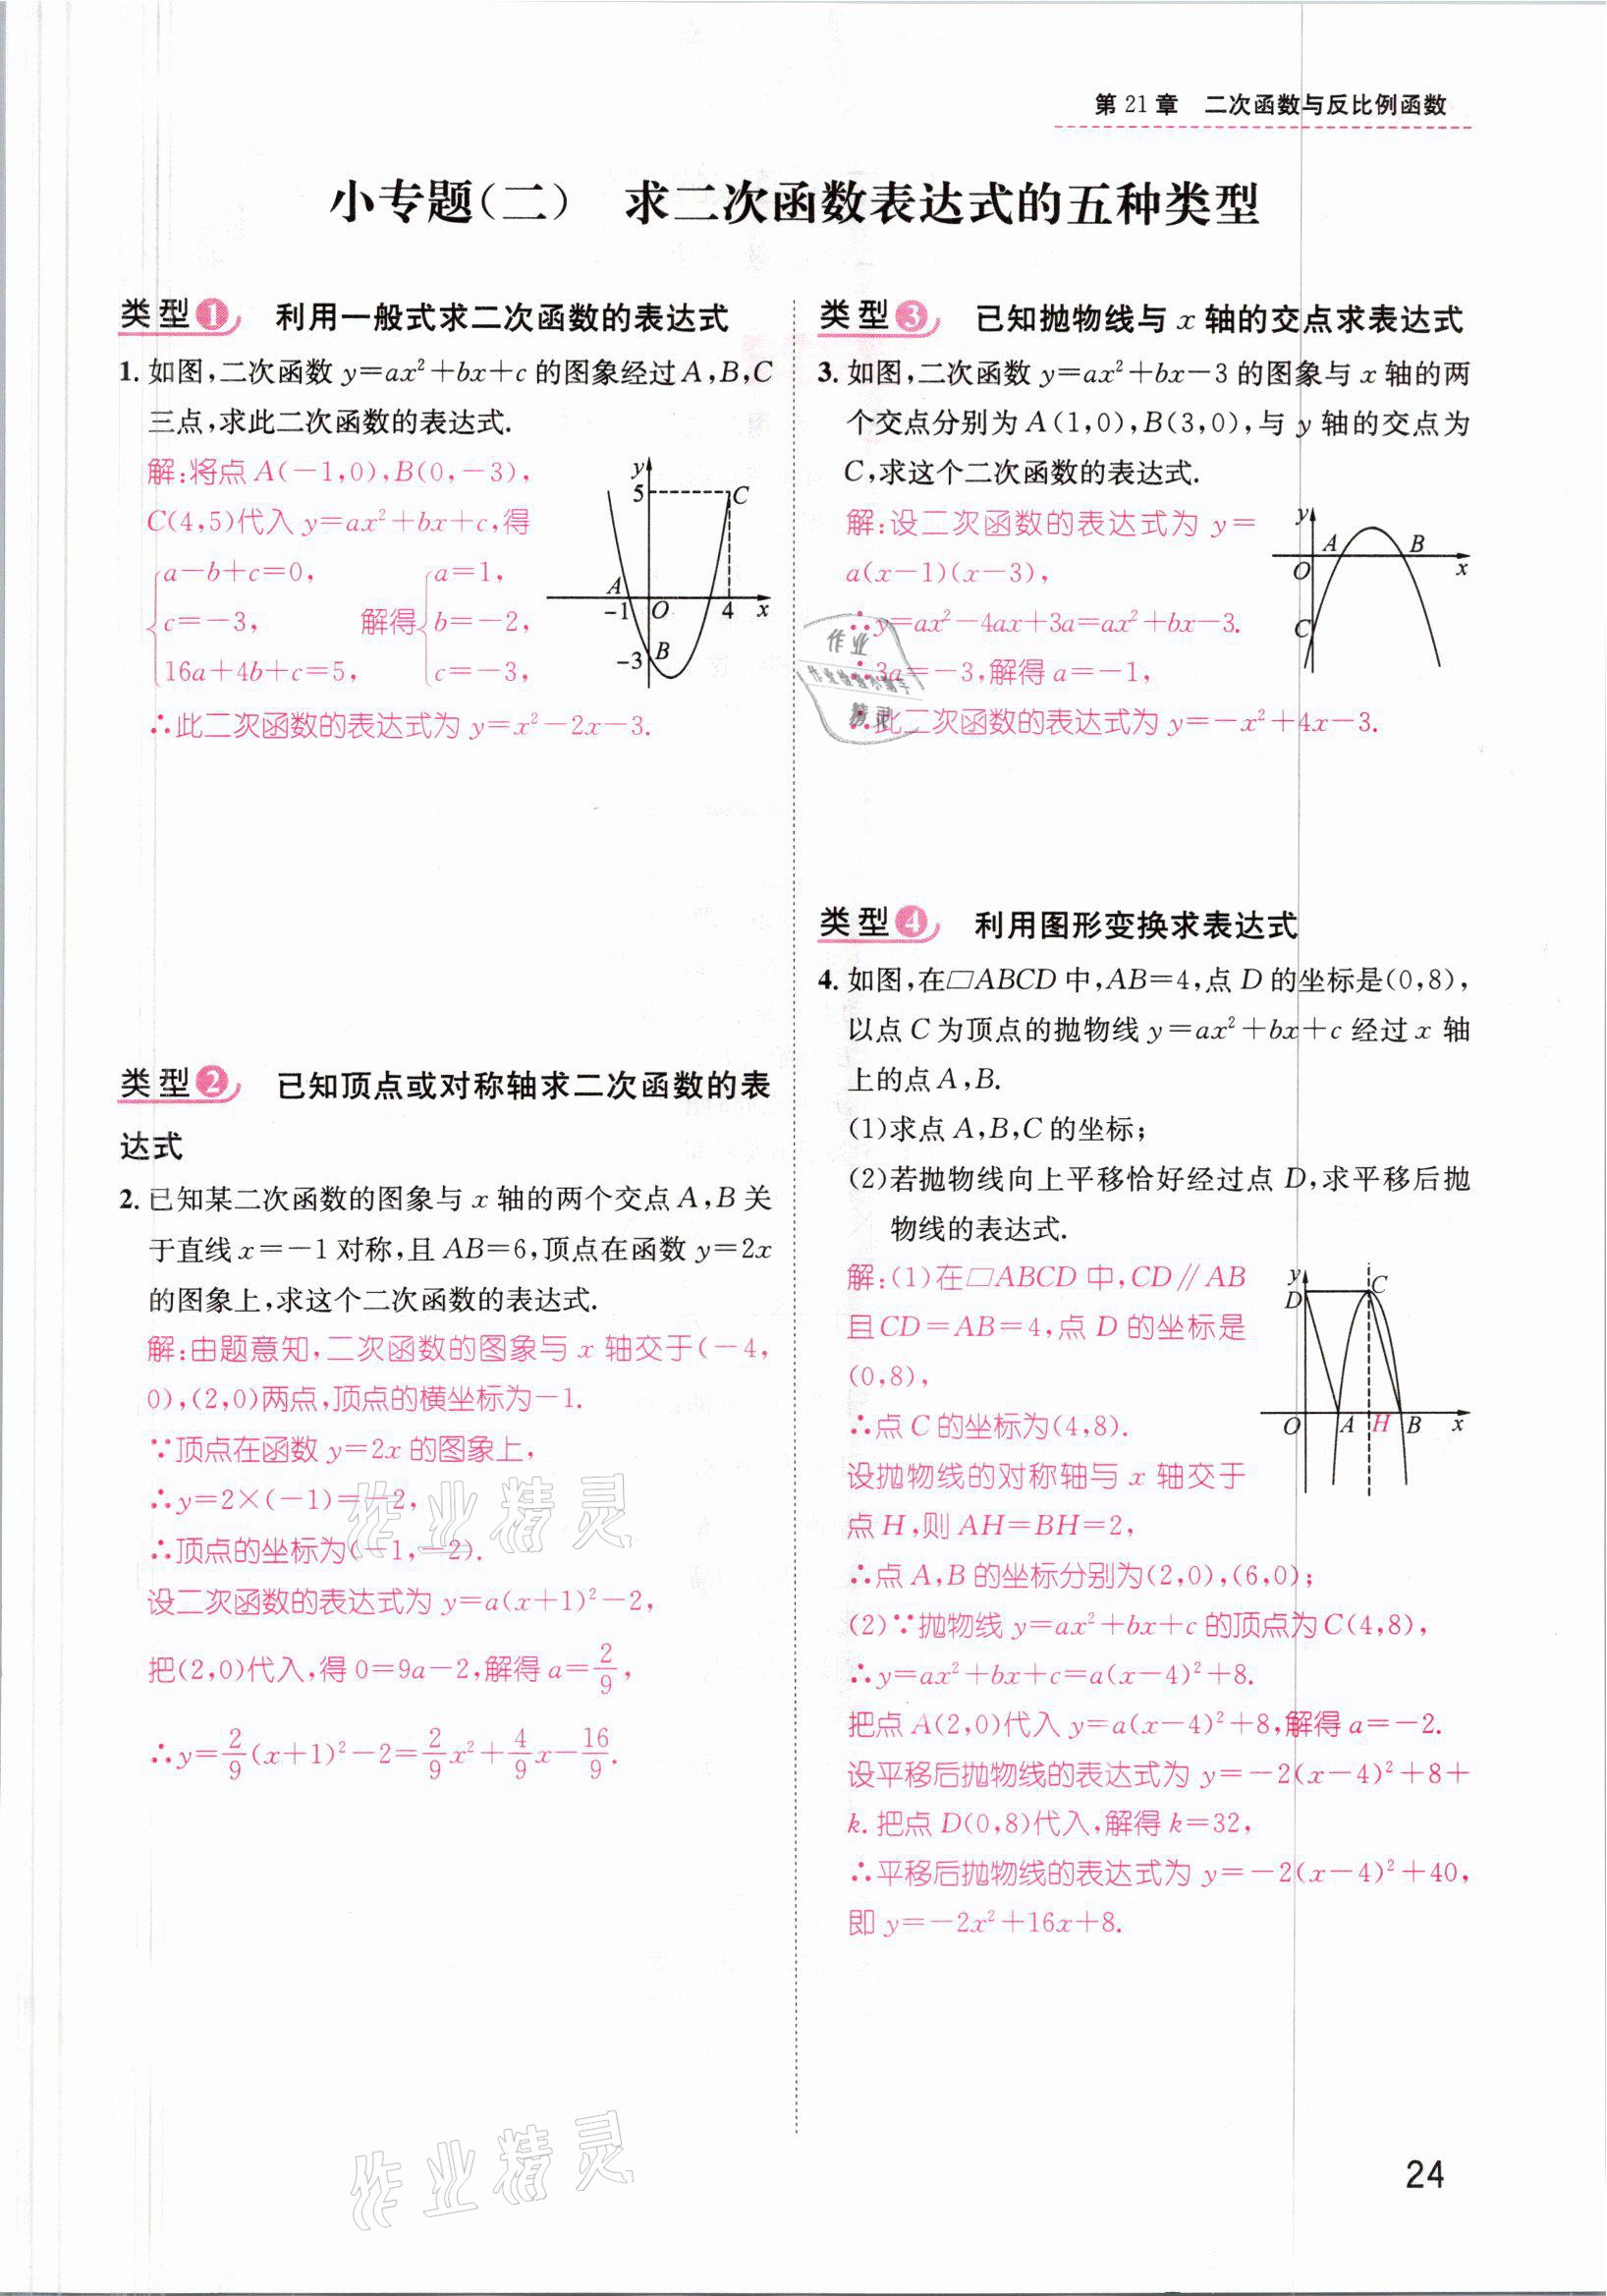 第 21 章　二次函数与反比例函数
小专题(二)　求二次函数表达式的五种类型
类型1　利用一般式求二次函数的表达式
1. 如图,二次函数 y=ax²+bx+c 的图象经过 A,B,C
三点,求此二次函数的表达式.
解:将点 A(-1,0),B(0,-3),
C(4,5)代入 y=ax²+bx+c,得
{a-b+c=0,　　{a=1,
c=-3,　解得　b=-2,
16a+4b+c=5,　c=-3,
∴此二次函数的表达式为 y=x²-2x-3.
y
5
C
A
-1
O
4
x
-3
B
类型2　已知顶点或对称轴求二次函数的表
达式
2. 已知某二次函数的图象与 x 轴的两个交点 A,B 关
于直线 x=-1 对称,且 AB=6,顶点在函数 y=2x
的图象上,求这个二次函数的表达式.
解:由题意知,二次函数的图象与 x 轴交于(-4,
0),(2,0)两点,顶点的横坐标为-1.
∵顶点在函数 y=2x 的图象上,
∴y=2×(-1)=-2,
∴顶点的坐标为(-1,-2).
设二次函数的表达式为 y=a(x+1)²-2,
把(2,0)代入,得 0=9a-2,解得 a=2/9,
∴y=2/9(x+1)²-2=2/9x²+4/9x-16/9.
类型3　已知抛物线与 x 轴的交点求表达式
3. 如图,二次函数 y=ax²+bx-3 的图象与 x 轴的两
个交点分别为 A(1,0),B(3,0),与 y 轴的交点为
C,求这个二次函数的表达式.
解:设二次函数的表达式为 y=
a(x-1)(x-3),
∴y=ax²-4ax+3a=ax²+bx-3.
∴3a=-3,解得 a=-1,
∴此二次函数的表达式为 y=-x²+4x-3.
y
A
B
O
x
C
类型4　利用图形变换求表达式
4. 如图,在▱ABCD 中,AB=4,点 D 的坐标是(0,8),
以点 C 为顶点的抛物线 y=ax²+bx+c 经过 x 轴
上的点 A,B.
(1)求点 A,B,C 的坐标;
(2)若抛物线向上平移恰好经过点 D,求平移后抛
物线的表达式.
解:(1)在▱ABCD 中,CD∥AB
且 CD=AB=4,点 D 的坐标是
(0,8),
∴点 C 的坐标为(4,8).
设抛物线的对称轴与 x 轴交于
点 H,则 AH=BH=2,
∴点 A,B 的坐标分别为(2,0),(6,0);
(2)∵抛物线 y=ax²+bx+c 的顶点为 C(4,8),
∴y=ax²+bx+c=a(x-4)²+8.
把点 A(2,0)代入 y=a(x-4)²+8,解得 a=-2.
设平移后抛物线的表达式为 y=-2(x-4)²+8+
k.把点 D(0,8)代入,解得 k=32,
∴平移后抛物线的表达式为 y=-2(x-4)²+40,
即 y=-2x²+16x+8.
y
D
C
O
A
H
B
x
作业
精灵
作业精灵
作业精灵
24